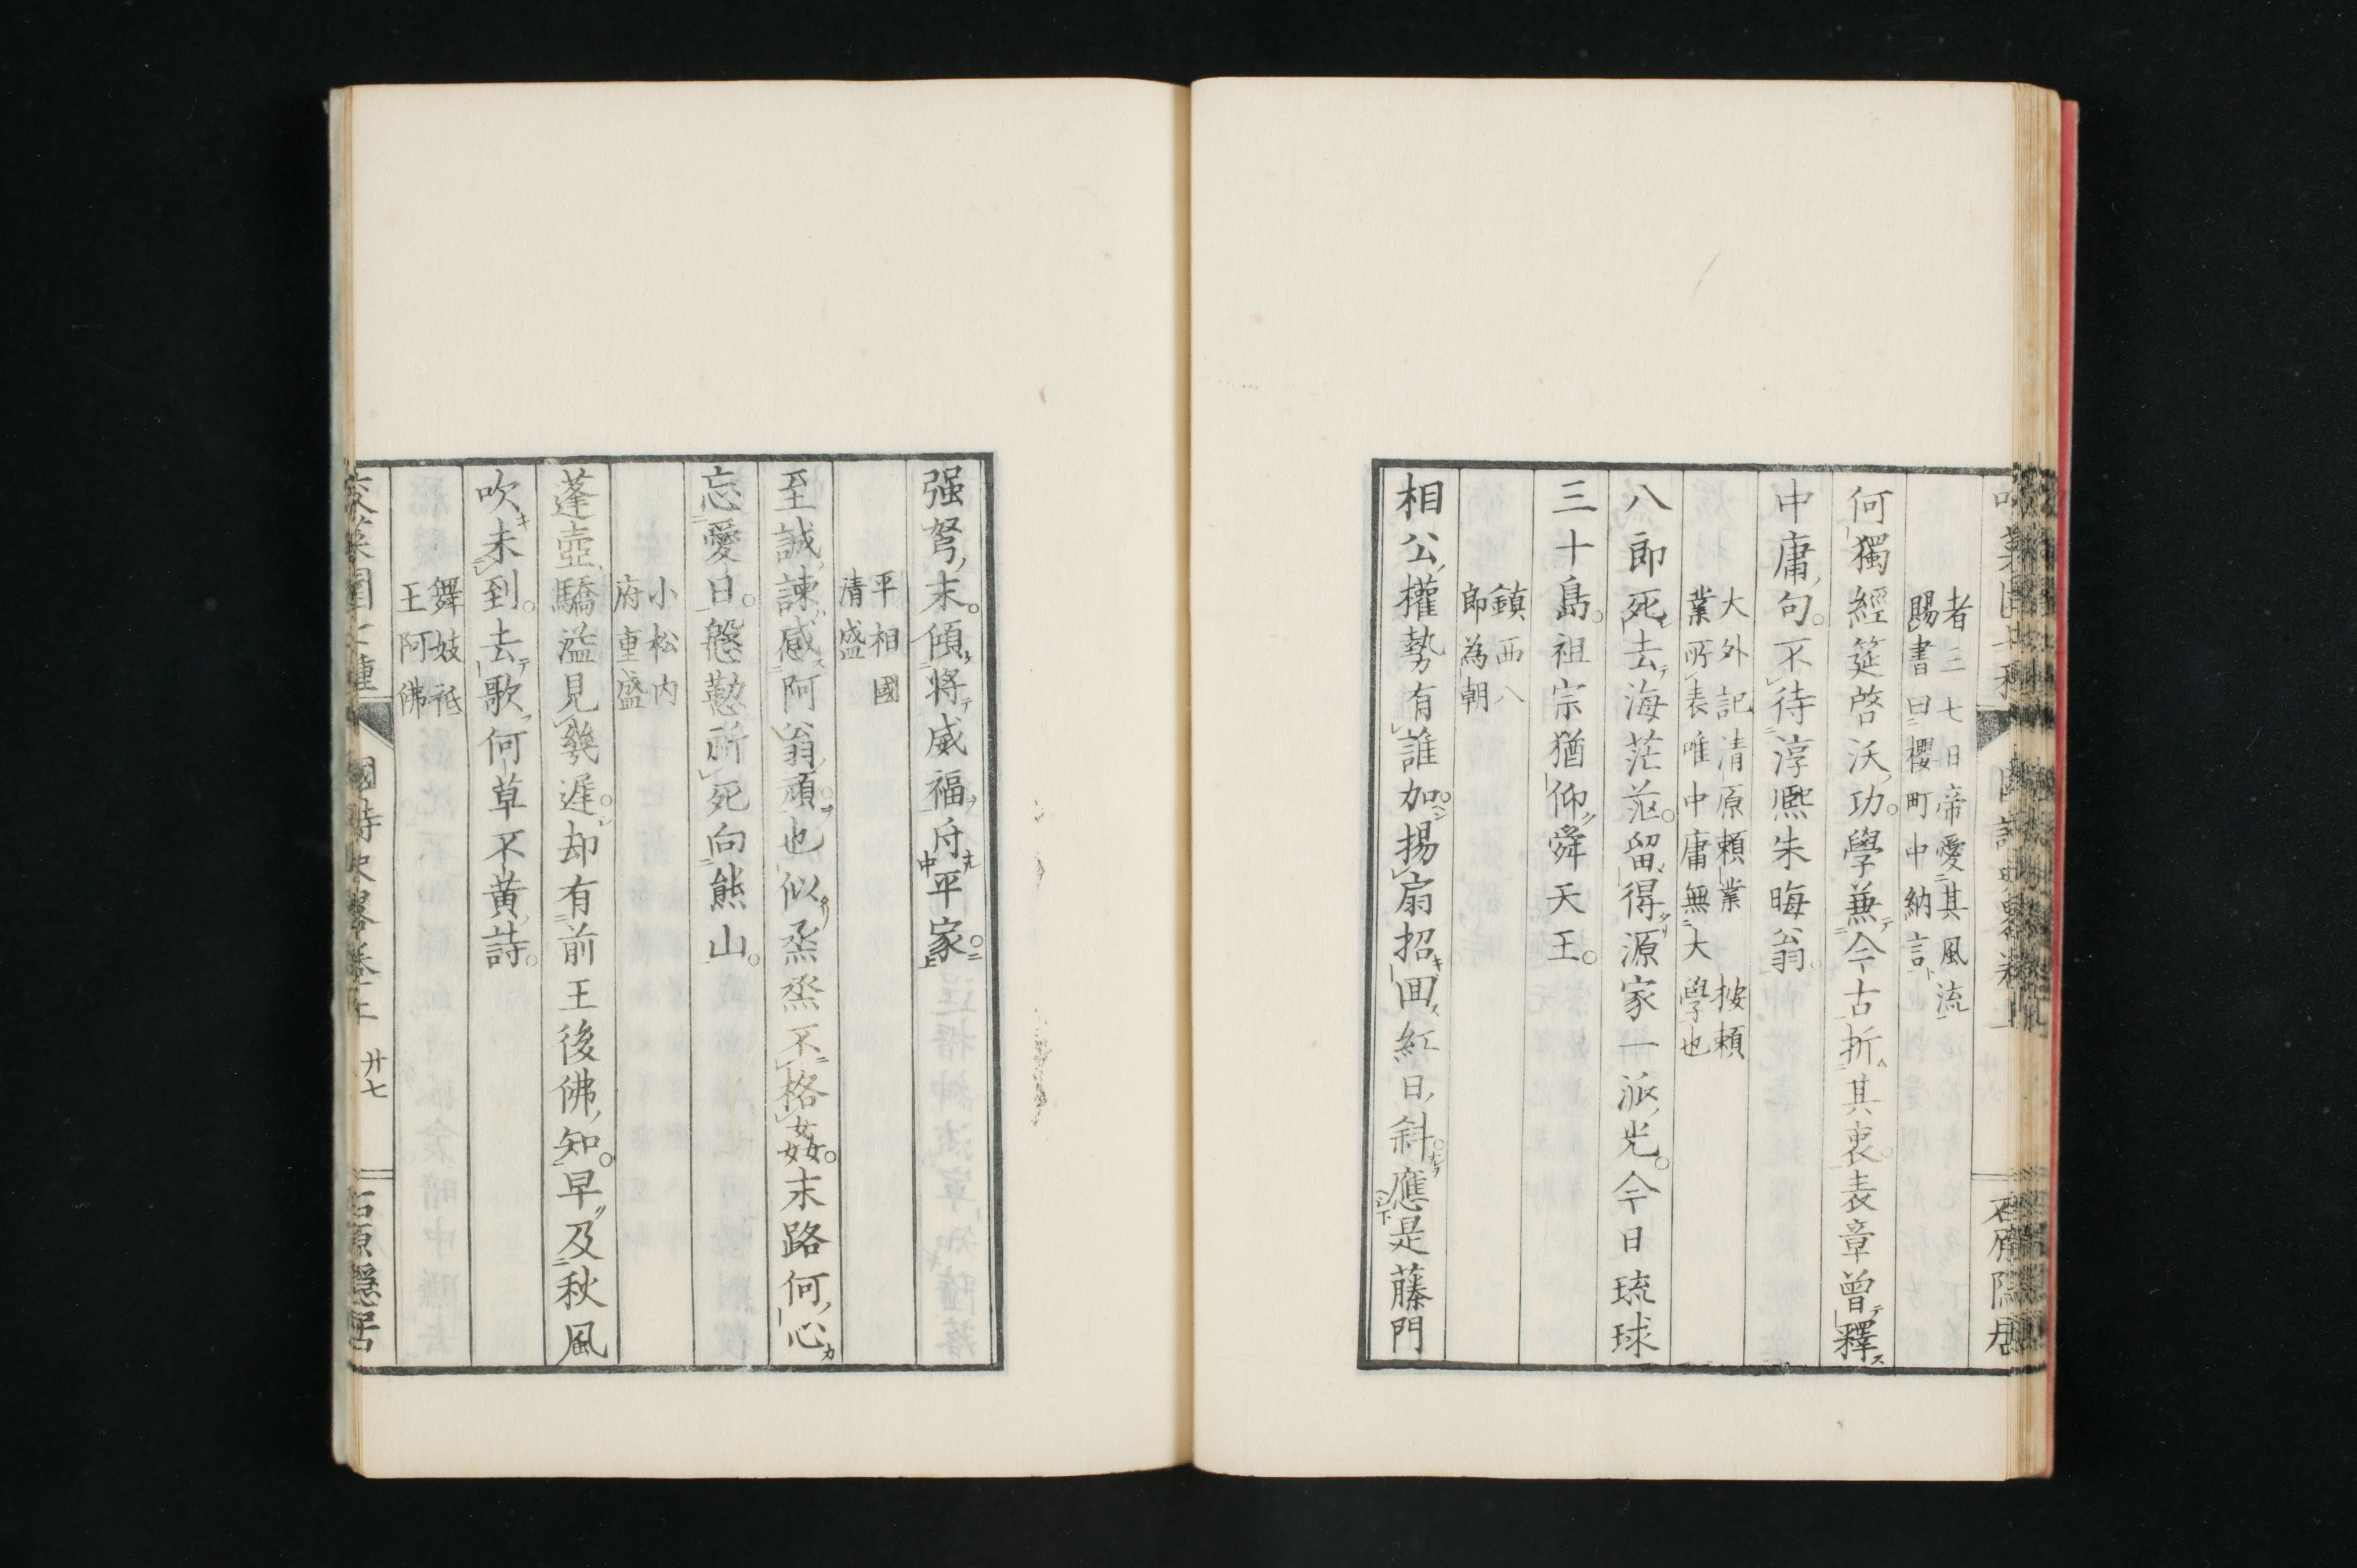 者三七日帝愛其風流
賜書曰櫻町中納言
何獨經筵啓沃功。學兼今古折其衷。表章曾釋
中庸句。不待淳熈朱晦翁。
大外記清原頼業 按頼
業所表唯中庸無大學也
八郎死去海茫茫。留得源家一派光。今日琉球
三十島。祖宗猶仰舜天王。
鎮西八
郎為朝
相公權勢有誰加。揚扇招回紅日斜。應是藤門
强弩末。傾將威福付平家。
平相國
清盛
至誠諫感阿翁頑。也似烝烝不格姦。末路何心
忘愛日。慇懃祈死向熊山。
小松内
府重盛
蓬壺驕溢見幾遲。却有前王後佛知。早及秋風
吹未到。去歌何草不黄詩。
舞妓祗
王阿佛
國詩史畧卷上 廾七
石原隱居